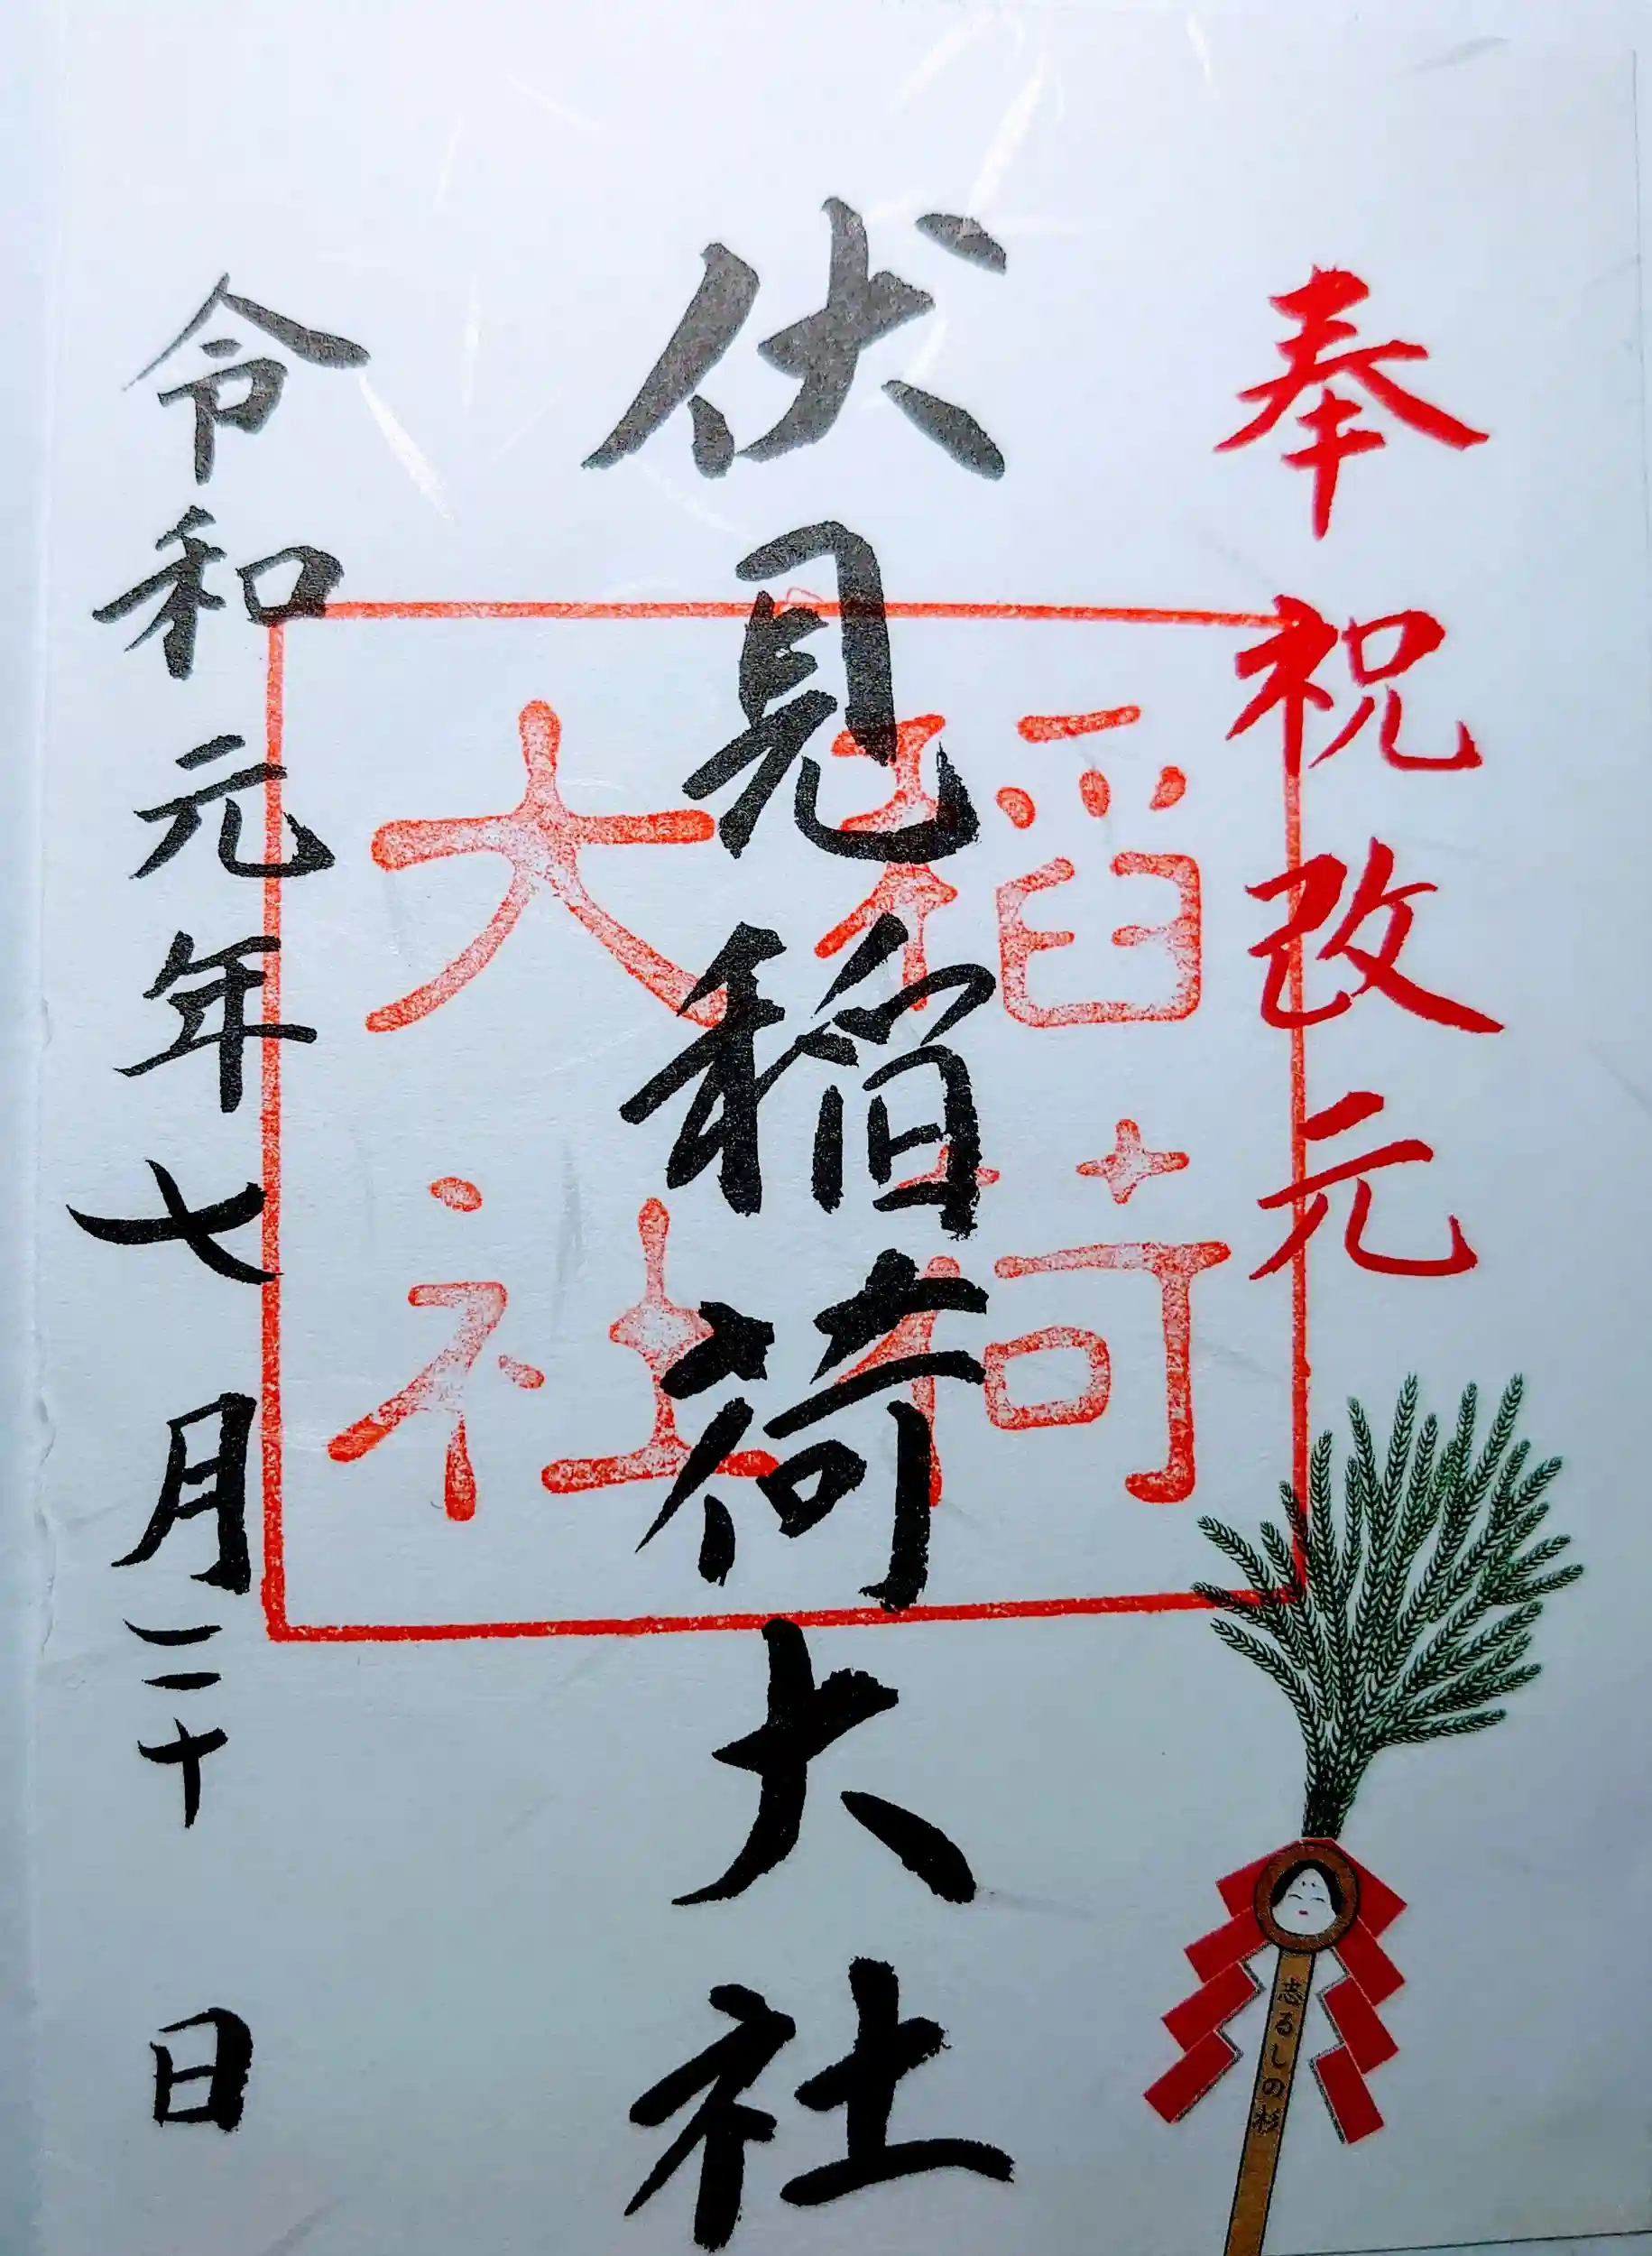 奉祝改元
伏見稲荷大社
令和元年七月二十日
稲荷
大社
志るしの杉